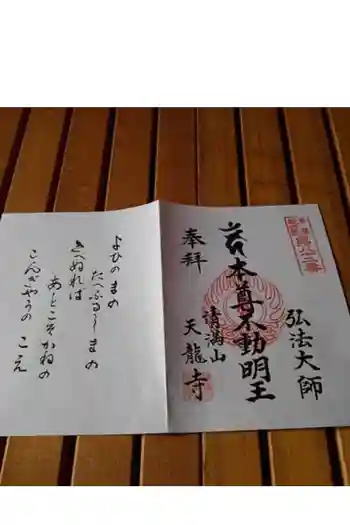 弘法大師
本尊不動明王
奉拝
清満山
天龍寺
よひのまの
たへふるしまの
きへぬれは
あとこそかねの
こんぎやうのこえ